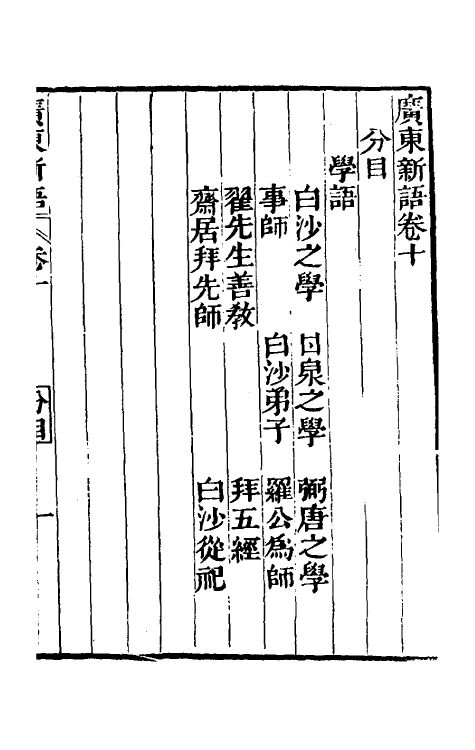 廣東新語卷十
分目
學語
白沙之學 甘泉之學 弼唐之學
事師 白沙弟子 羅公為師
翟先生善教 拜五經
齋居拜先師 白沙從祀
廣東新語 卷十 分目 一